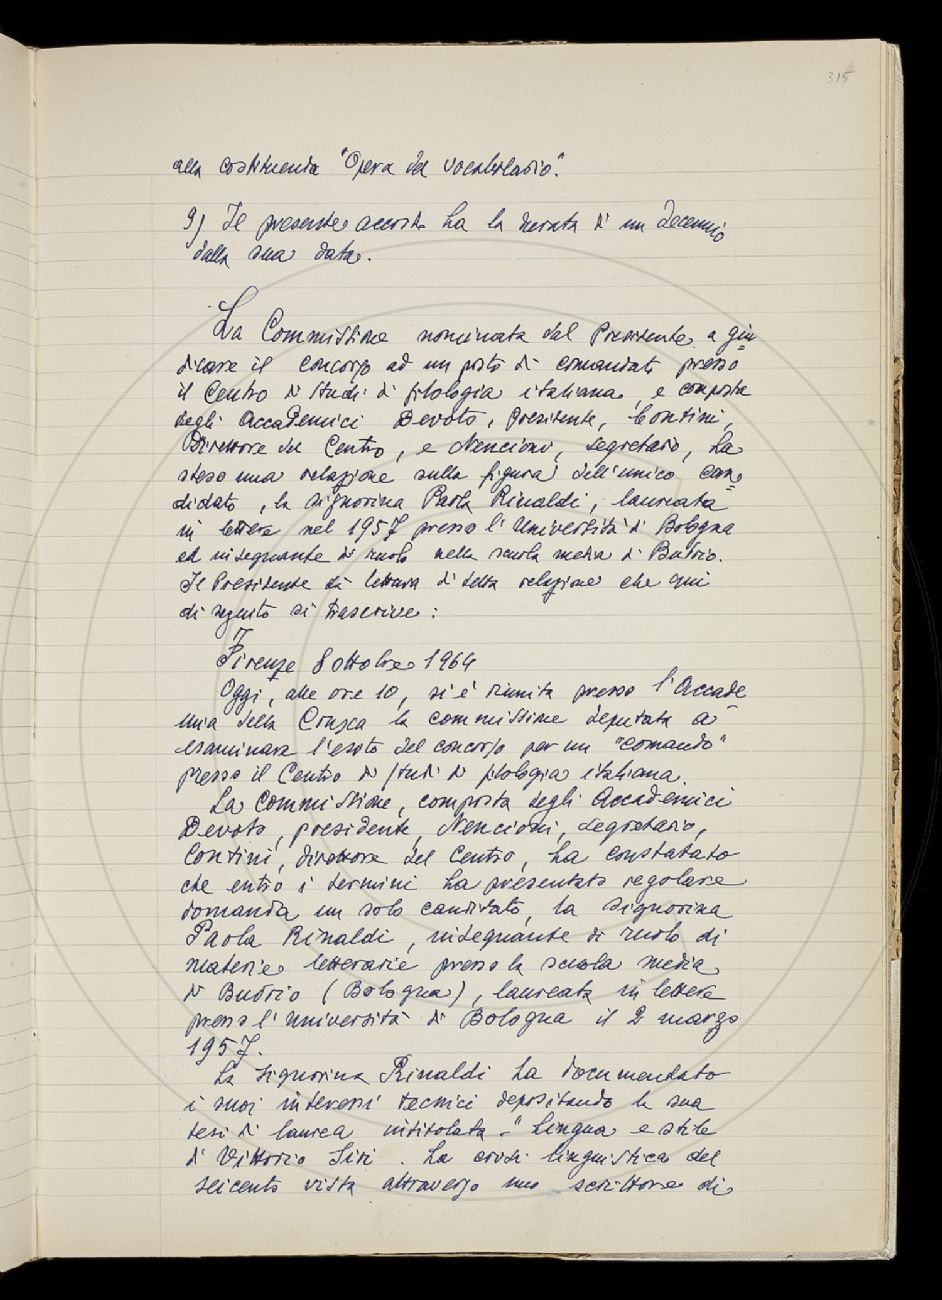 315
alla costituenda "Opera del vocabolario".
9) Il presente accordo ha la durata di un decennio
dalla sua data.
La Commissione nominata dal Presidente a giu
dicare il concorso ad un posto di comandato presso
il Centro di Studi di filologia italiana, e composta
degli Accademici Devoto, Presidente, Contini,
Direttore del Centro, e Nencioni, Segretario, ha
steso una relazione sulla figura dell'unico can=
didato, la signorina Paola Rinaldi, laureata
in lettere nel 1957 presso l'Università di Bologna
ed insegnante di ruolo nella scuola media di Budrio.
Il Presidente dà lettura di detta relazione che qui
di seguito si trascrive:
Firenze 8 ottobre 1964
Oggi, alle ore 10, si è riunita presso l'Accade=
mia della Crusca la commissione deputata a
esaminare l'esito del concorso per un "comando"
presso il Centro di studi di filologia italiana.
La Commissione, composta degli Accademici
Devoto, presidente, Nencioni, segretario,
Contini, direttore del Centro, ha constatato
che entro i termini ha presentato regolare
domanda un solo candidato, la signorina
Paola Rinaldi, insegnante di ruolo di
materie letterarie presso la scuola media
di Budrio (Bologna), laureata in lettere
presso l'università di Bologna il 2 marzo
1957.
La signorina Rinaldi ha documentato
i suoi interessi tecnici depositando la sua
tesi di laurea intitolata - "Lingua e stile
di Vittorio Siri. La crisi linguistica del
seicento vista attraverso uno scrittore di